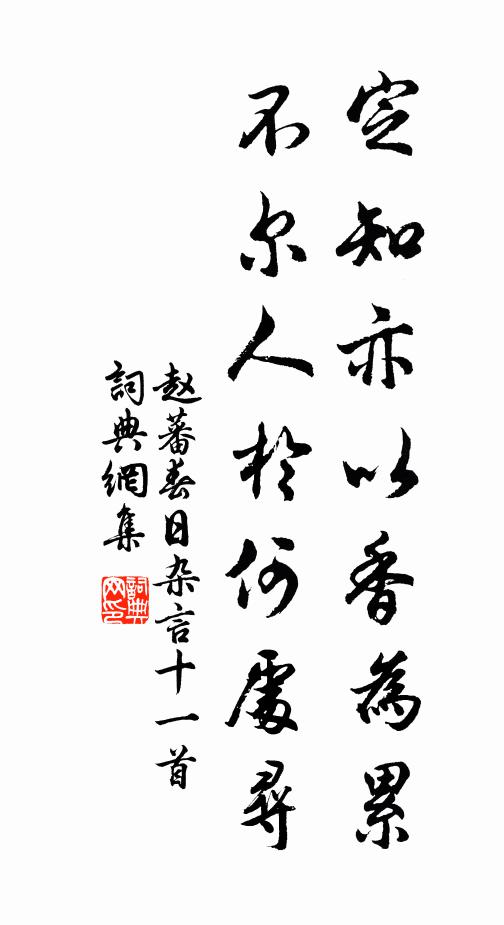 定知亦以香為累
不尔人於何處尋
赵蕃春日杂言十一首
詞典網集
詞典
网印